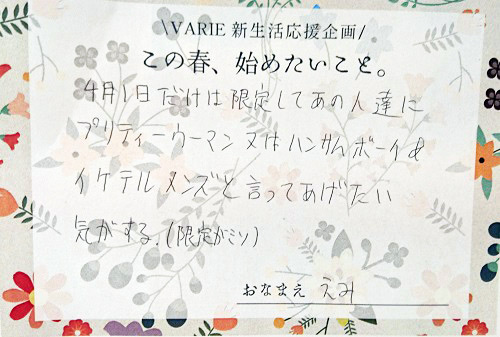 \VARIE 新生活応援企画/
この春、始めたいこと。
4月1日だけは限定してあの人達に
プリティーウーマン又はハンサムボーイ&
イケテルメンズと言ってあげたい
気がする。(限定がミソ)
おなまえ えみ